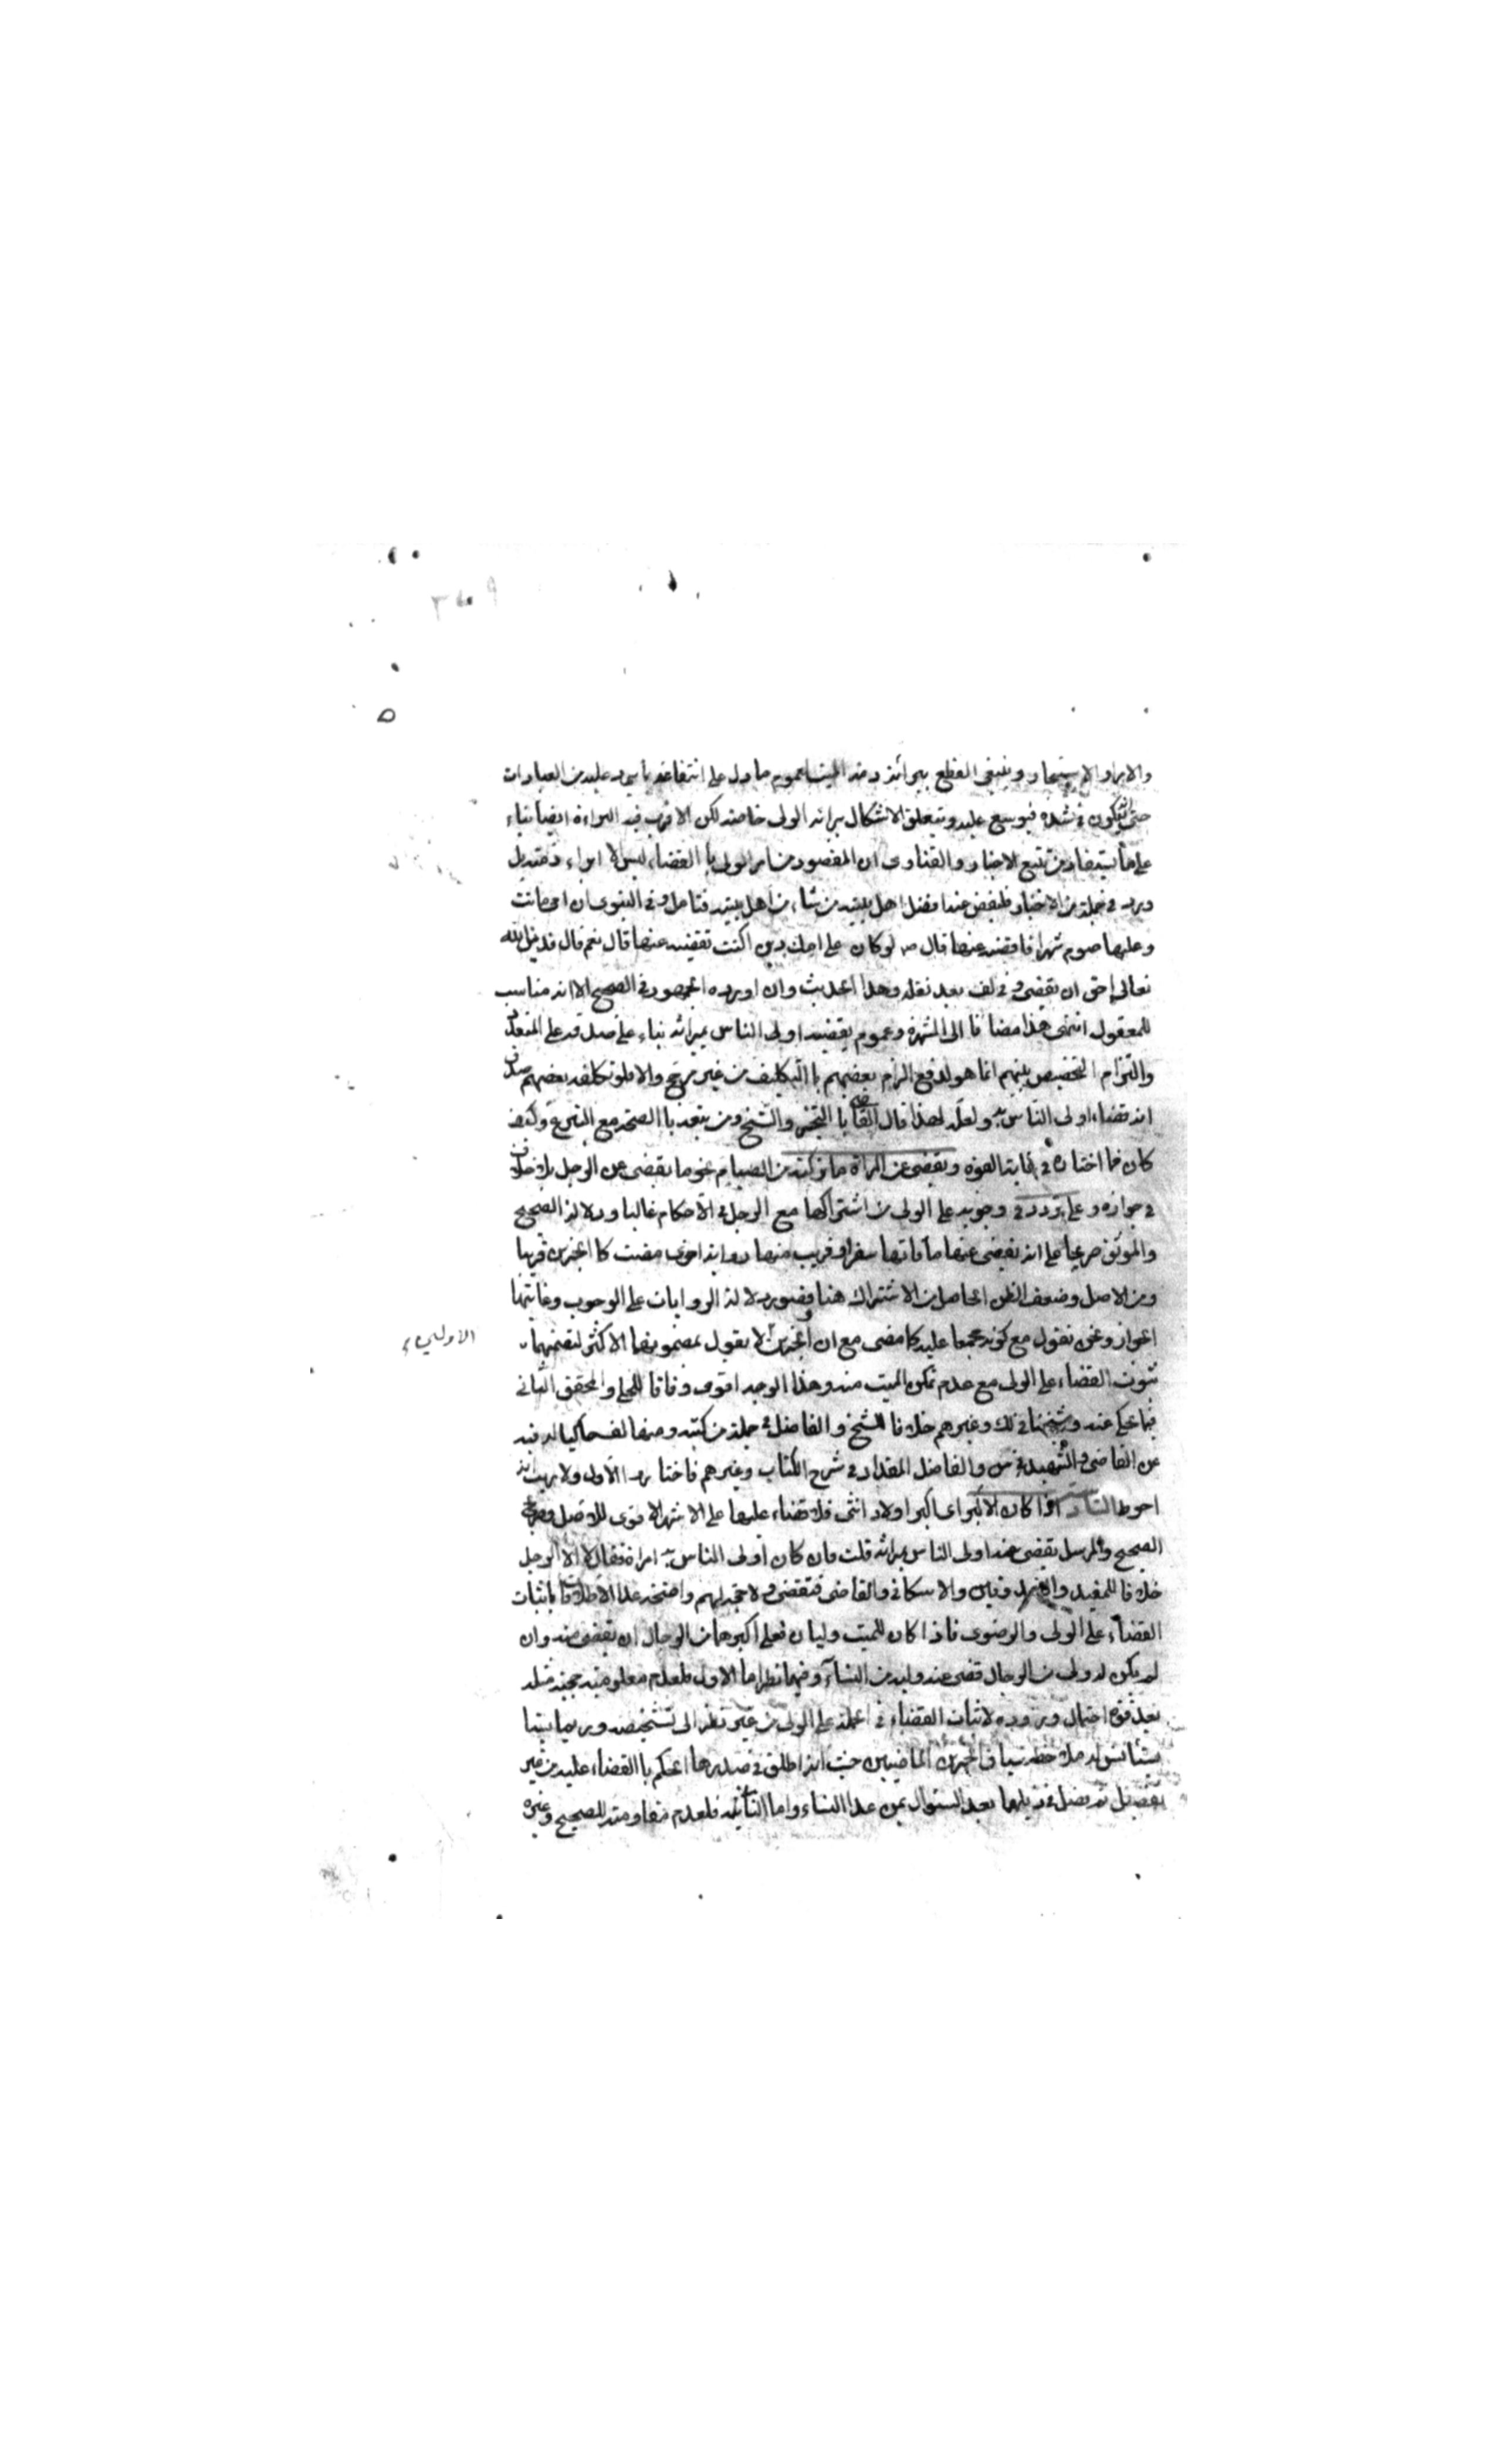 والابراء والاستيجار وينبغي القطع ببرائة ذمة الميت لعموم ما دل على انتفاعه بما يرد عليه من العبادات
حتى انه يكون في شدة فيوسع عليه ويتعلق الاشكال ببرائة الولى خاصة لكن الاقرب فيه البراءة ايضا بناء
على ما يستفاد من تتبع الاخبار والفتاوى ان المقصود من امر الولى با القضاء ليس الا ابراء ذمته بل
ورد في جملة من الاخبار فليقض عنه افضل اهل بيته من شاء من اهل بيته فتامل وفي النبوى ان امى ماتت
وعليها صوم شهر افاقضيه عنها قال ص لو كان على امك دين اكنت تقضيه عنها قال نعم قال فدين الله
تعالى احق ان يقضى وفي لف بعد نقله وهذا الحديث وان اورده الجمهور في الصحيح الا انه مناسب
للمعقول انتهى هذا مضافا الى الشهرة وعموم يقضيه اولى الناس بميراثه بناء على صدقه على المتعدد
والتزام التخصيص بينهم انما هو لدفع الزام بعضهم با التكليف من غير مرجح والا فلو تكلفه بعضهم صدق
انه قضاء اولى الناس به ولعله لهذا قال القاضى با التخير والشيخ ومن بتعه با الصحة مع التبرع وكيف
كان فما اختاره في غاية القوة ويقضى عن المراة ما تركته من الصيام نحو ما يقضى عن الرجل بلا خلاف
في جوازه وعلى تردد في وجوبه على الولى من اشتراكها مع الرجل في الاحكام غالبا ودلالة الصحيح
والموثق صريحا على انه يقضى عنها ما فاتها سفرا وقريب منها رواية اخرى مضت كا الخبرين قريبا
ومن الاصل وضعف الظن الحاصل من الاشتراك هنا وقصور دلالة الروايات على الوجوب وغايتها
الجواز ونحن نقول مع كونه مجمعا عليه كما مضى مع ان الخبرين الاولين لا يقول بمضمونهما الاكثر لتضمنهما
ثبوت القضاء على الولى مع عدم تمكن الميت منه وهذا الوجه اقوى وفاقا للحلى والمحقق الثانى
فيما حكى عنه وشيخنا في لك وغيرهم خلافا للشيخ والفاضل في جملة من كتبه ومنها لف حاكيا له فيه
عن القاضى والشهيد في س والفاضل المقداد في شرح الكتاب وغيرهم فاختاروا الاول ولا ريب انه
احوط اذا كان الاكبر اى اكبر اولاد انثى فلا قضاء عليها على الاشهر الاقوى للاصل وصريح
الصحيح والمرسل يقضى عنه اولى الناس بميراثه قلت فان كان اولى الناس به امراة فقال لا الا الرجل
خلافا للمفيد والصدوقين والاسكافى والقاضى فتقضى ولا حجة لهم واضحة عدا الاطلاقات باثبات
القضاء على الولى والرضوى فاذا كان للميت وليان فعلى اكبرهما من الرجال ان يقضى عنه وان
لم يكن له ولى من الرجال قضى عنه وليه من النساء وفيهما نظر اما الاول فلعدم معلومية حجية مثله
بعد قوة احتمال وروده لاثبات القضاء في الجملة على الولى من غير نظر الى تشخيصه وربما
يستانس له ملاحظة سياق الخبرين الماضيين حيث انه اطلق في صدرهما الحكم با القضاء عليه من غير
تفصيل ثم فصل في ذيلهما بعد السئوال عمن عدا النساء واما الثانى فلعدم مقاومته للصحيح وغيره